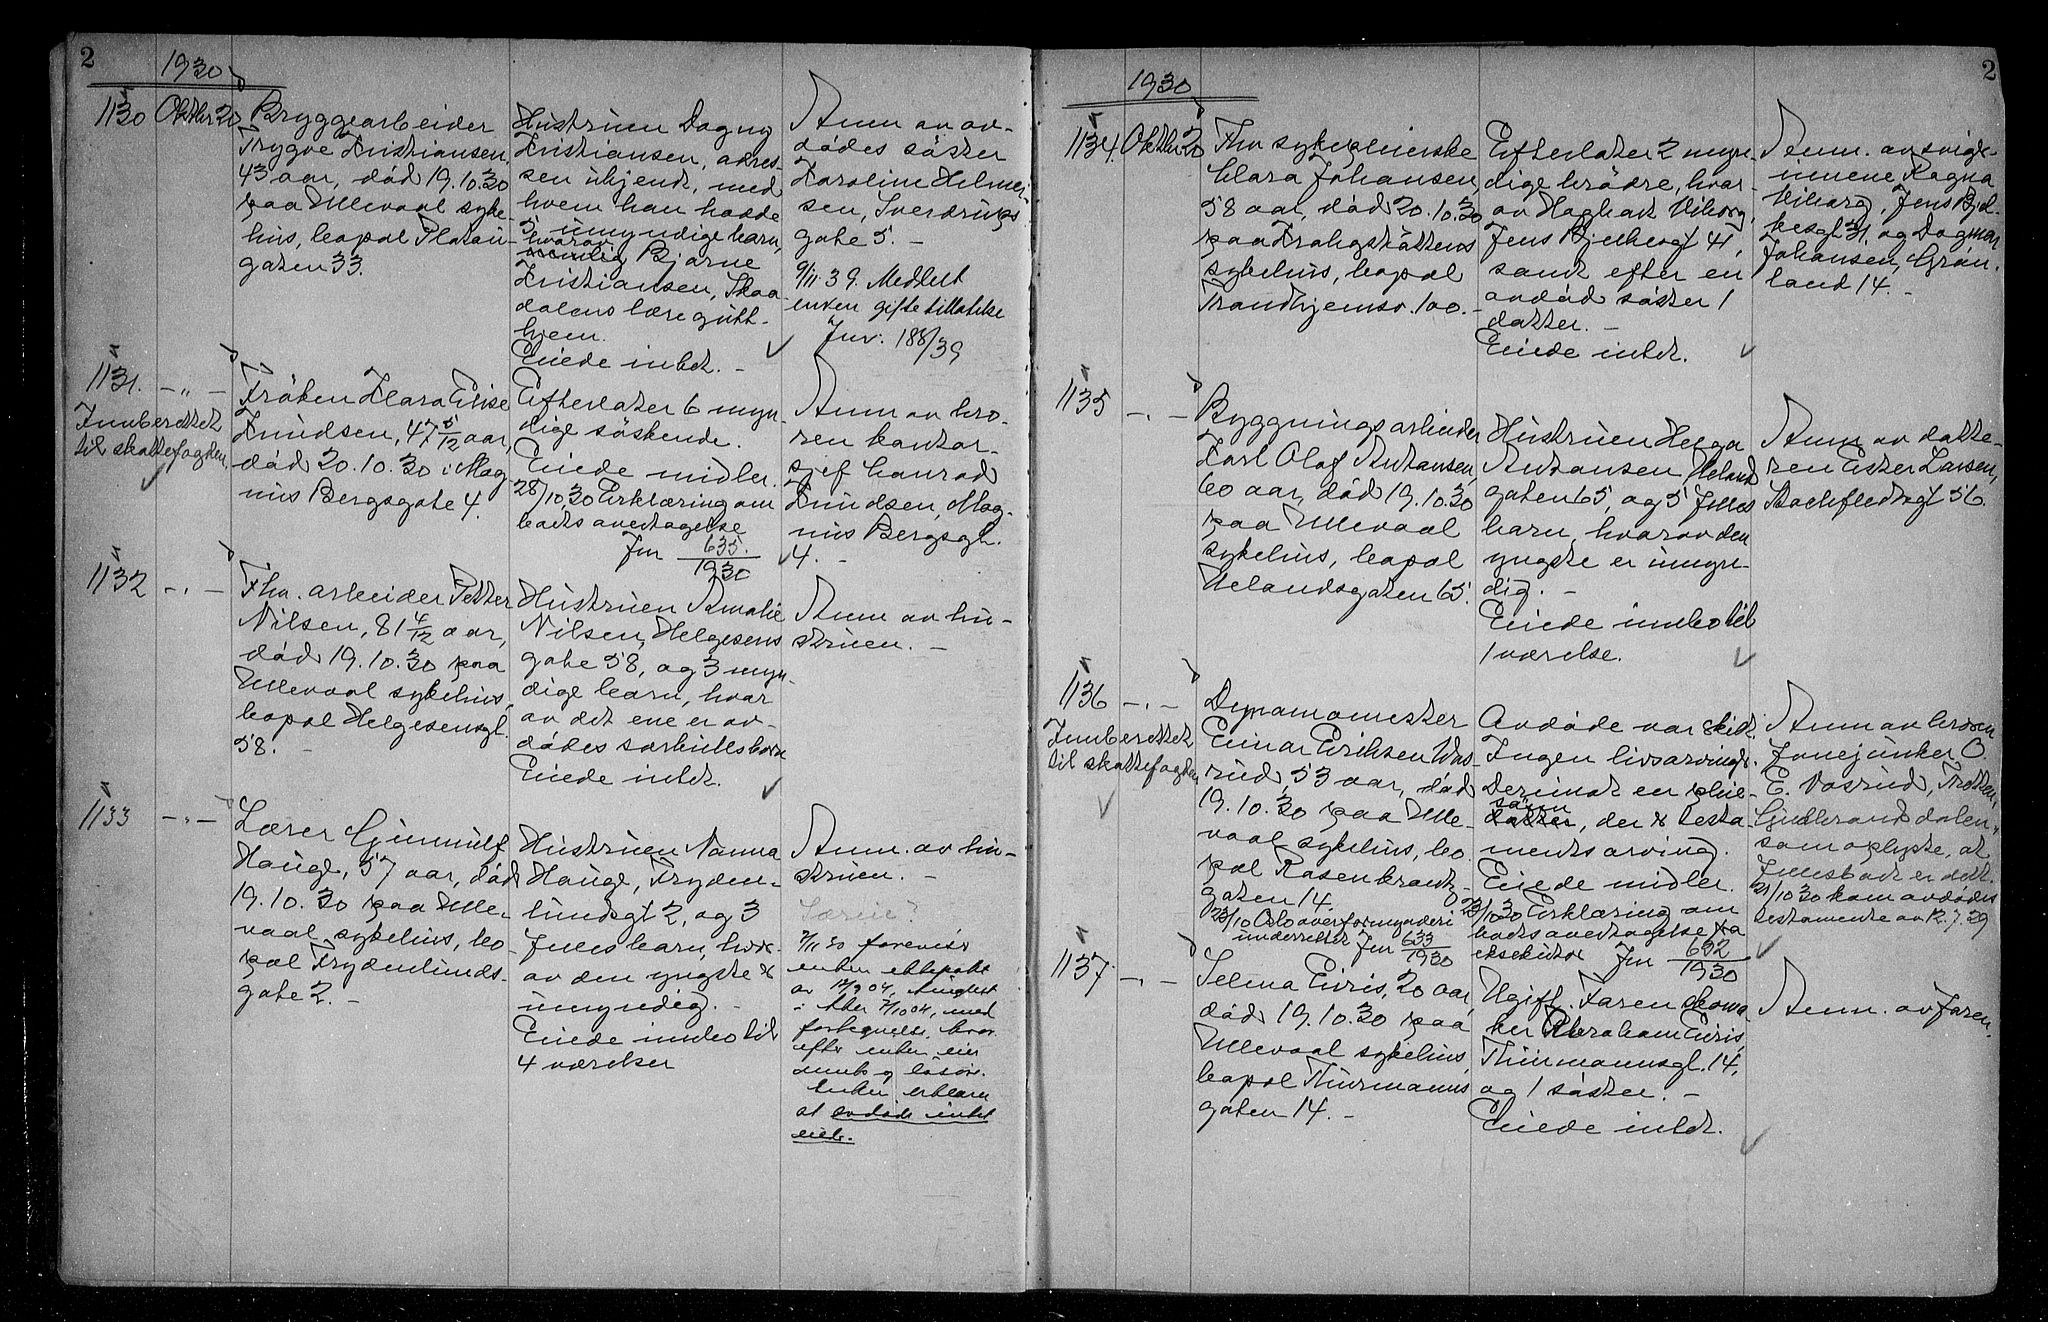 2
1930
1130 Oktbr 20
Bryggearbeider
Trygve Kristiansen,
43 aar, död 19.10.30
paa Ullevaal syke-
hus, bopæl Platou-
gaten 33.
Hustruen Dagny
Kristiansen, adres-
sen ukjendt, med
hvem han hadde
5 umyndige barn,
hvorav
nemlig Bjarne
Kristiansen, Skaa-
dalens læregutt-
hjem.
Eiede intet. -
Anm av av-
dödes söster
Karoline Helmer-
sen, Sverdrups
gate 5. -
9/11.39. Meddelt
enken giftetillatelse
Jnr. 188/39
1131. -"-
Innberettet
til skattefogden
Fröken Klara Elise
Knudsen, 47 5/12 aar,
död 20.10.30 i Mag
nus Bergsgate 4.
Efterlater 6 myn
dige söskende.
Eiede midler.
28/10.30 Erklæring om
boets overtagelse
Jnr 635.
1930
Anm av bro-
ren kontor-
sjef Conrad
Knudsen, Mag-
nus Bergsgt.
4. -
1132 -"-
Fhv. arbeider Petter
Nilsen, 81 4/12 aar,
död 19.10.30 paa
Ullevaal sykehus,
bopæl Helgesensgt.
58. -
Hustruen Amalie
Nilsen, Helgesens
gate 58, og 3 myn-
dige barn, hvor
av det ene er av-
dödes særkullsbarn
Eiede intet.
Anm av hu-
struen. -
1133 -"-
Lærer Gunnulf
Hauge, 57 aar, död
19.10.30 paa Ulle-
vaal sykehus, bo
pæl Frydenlunds-
gate 2. -
Hustruen Nanna
Hauge, Fryden-
lundsgt 2, og 3
fælles barn, hvor-
av den yngste er
umyndig. -
Eiede innbo til
4 værelser
Anm. av hu-
struen. -
Særeie?
7/11 30 foreviser
enken ektepakt
av 12/9 04, tinglest
i Aker 7/10 04, med
fortegnelse, hvor
efter enken eier
innbo og lösöre.
Enken erklærer
at avdöde intet
eiet.
2
1930
1134. Oktbr 20
Fhv sykepleierske
Clara Johansen,
58 aar, död 20.10.30
paa Krohgstöttens
sykehus, bopæl
Trondhjemsv. 100. -
Efterlater 2 myn-
dige brödre, hvor-
av Hagbart Viborg,
Jens Bjelkesgt 41,
samt efter en
avdöd söster 1
datter. -
Eiede intet.
Anm. av svige-
rinnene Ragna
Viborg, Jens Bjel-
kesgt 31, og Dagmar
Johansen, Grön-
land 14. -
1135 -"-
Bygningsarbeider
Karl Olaf Antonsen,
60 aar, död 19.10.30
paa Ullevaal
sykehus, bopæl
Uelandsgaten 65.
Hustruen Helga
Antonsen Ueland
gaten 65, og 5 fælles
barn, hvorav den
yngste er umyn-
dig. -
Eiede innbo til
1 værelse.
Anm av datte-
ren Ester Larsen,
Stockfledtsgt 56.
1136 -"-
Innberettet
til skattefogden
Dynamomester
Einar Eriksen Vas-
rud, 53 aar, död
19.10.30 paa Ulle-
vaal sykehus, bo
pæl Rosenkrantz-
gaten 14.
23/10 Oslo overformynderi
underrettet Jnr 633
1930
Avdöde var skilt.
Ingen livsarving.
Derimot en pleie-
sönn
datter, der er testa-
mentsarving.
Eiede midler.
23/10 30 Erklæring om
boets overtagelse fra
eksekutor Jnr 632
1930
Anm av broren
fanejunker O.
E. Vasrud, Fron
Gudbrandsdalen,
som oplyste, at
fellesbo er delt.
21/10 30 kom avdödes
testamente av 12.7.29
1137. -"-
Selma Eiris, 20 aar,
död 19.10.30 paa
Ullevaal sykehus,
bopæl Thurmanns
gaten 14. -
Ugift. Faren skoma
ker Abraham Eiris,
Thurmannsgt. 14,
og 1 söster. -
Eiede intet.
Anm. av faren.